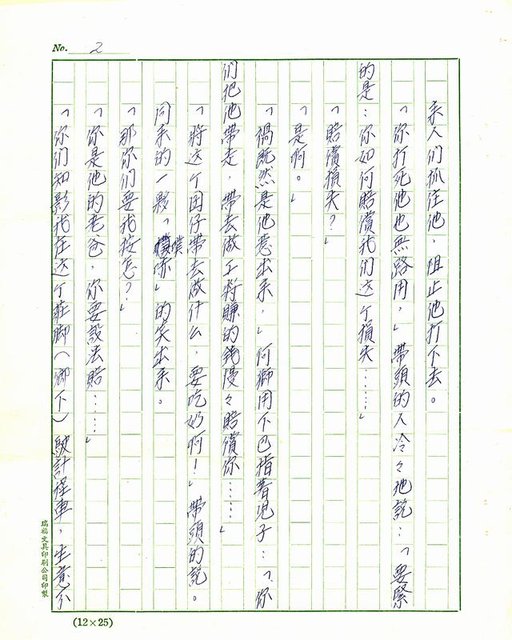 No. 2
来人们抓住他，阻止他打下去。
「你打死他也無路用，」帶頭的人冷々地說：「要緊
的是：你如何賠償我们这个損失……」
「賠償損失？」
「是啊。」
「禍既然是他惹出来，」何獅用下巴指著兒子：「你
们把他帶走，帶去做工将賺的錢慢々賠償你……」
「将这个囝仔帶去做什么，要吃奶啊！」帶頭的說。
同来的一夥「噗嗤」的笑出来。
「那你们要我按怎？」
「你是他的老爸，你要設法賠……」
「你们知影我在这个莊脚（鄉下）駛計程車，生意不
瑞福文具印刷公司印製
(12×25)